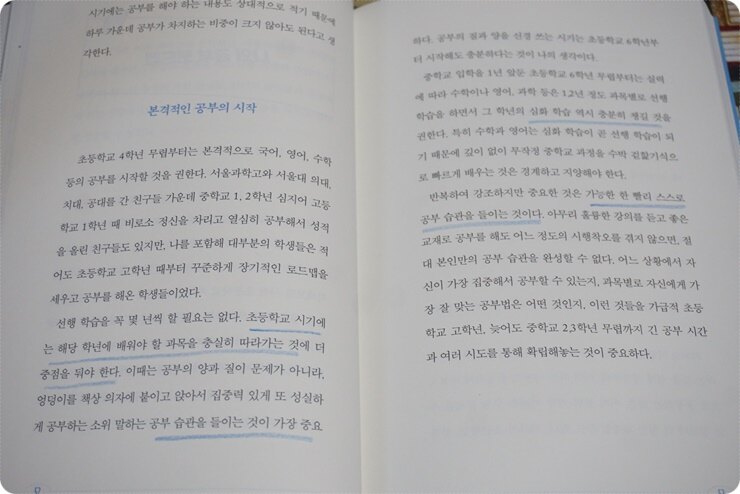 시기에는 공부를 해야 하는 내용도 상대적으로 적기 때문에
하루 가운데 공부가 차지하는 비중이 크지 않아도 된다고 생
각한다.
본격적인 공부의 시작
초등학교 4학년 무렵부터는 본격적으로 국어, 영어, 수학
등의 공부를 시작할 것을 권한다. 서울과학고와 서울대 의대,
치대, 공대를 간 친구들 가운데 중학교 1, 2학년 심지어 고등
학교 1학년 때 비로소 정신을 차리고 열심히 공부해서 성적
을 올린 친구들도 있지만, 나를 포함해 대부분의 학생들은 적
어도 초등학교 고학년 때부터 꾸준하게 장기적인 로드맵을
세우고 공부를 해온 학생들이었다.
선행 학습을 꼭 몇 년씩 할 필요는 없다. 초등학교 시기에
는 해당 학년에 배워야 할 과목을 충실히 따라가는 것에 더
중점을 둬야 한다. 이때는 공부의 양과 질이 문제가 아니라,
엉덩이를 책상 의자에 붙이고 앉아서 집중력 있게 또 성실하
게 공부하는 소위 말하는 공부 습관을 들이는 것이 가장 중요
하다. 공부의 질과 양을 신경 쓰는 시기는 초등학교 6학년부
터 시작해도 충분하다는 것이 나의 생각이다.
중학교 입학을 1년 앞둔 초등학교 6학년 무렵부터는 실력
에 따라 수학이나 영어, 과학 등은 1,2년 정도 과목별로 선행
학습을 하면서 그 학년의 심화 학습 역시 충분히 챙길 것을
권한다. 특히 수학과 영어는 심화 학습이 곧 선행 학습이 되
기 때문에 깊이 없이 무작정 중학교 과정을 수박 겉핥기식으
로 빠르게 배우는 것은 경계하고 지양해야 한다.
반복하여 강조하지만 중요한 것은 가능한 한 빨리 스스로
공부 습관을 들이는 것이다. 아무리 훌륭한 강의를 듣고 좋은
교재로 공부를 해도 어느 정도의 시행착오를 겪지 않으면, 절
대 본인만의 공부 습관을 완성할 수 없다. 어느 상황에서 자
신이 가장 집중해서 공부할 수 있는지, 과목별로 자신에게 가
장 잘 맞는 공부법은 어떤 것인지, 이런 것들을 가급적 초등
학교 고학년, 늦어도 중학교 2,3학년 무렵까지 긴 공부 시간
과 여러 시도를 통해 확립해놓는 것이 중요하다.